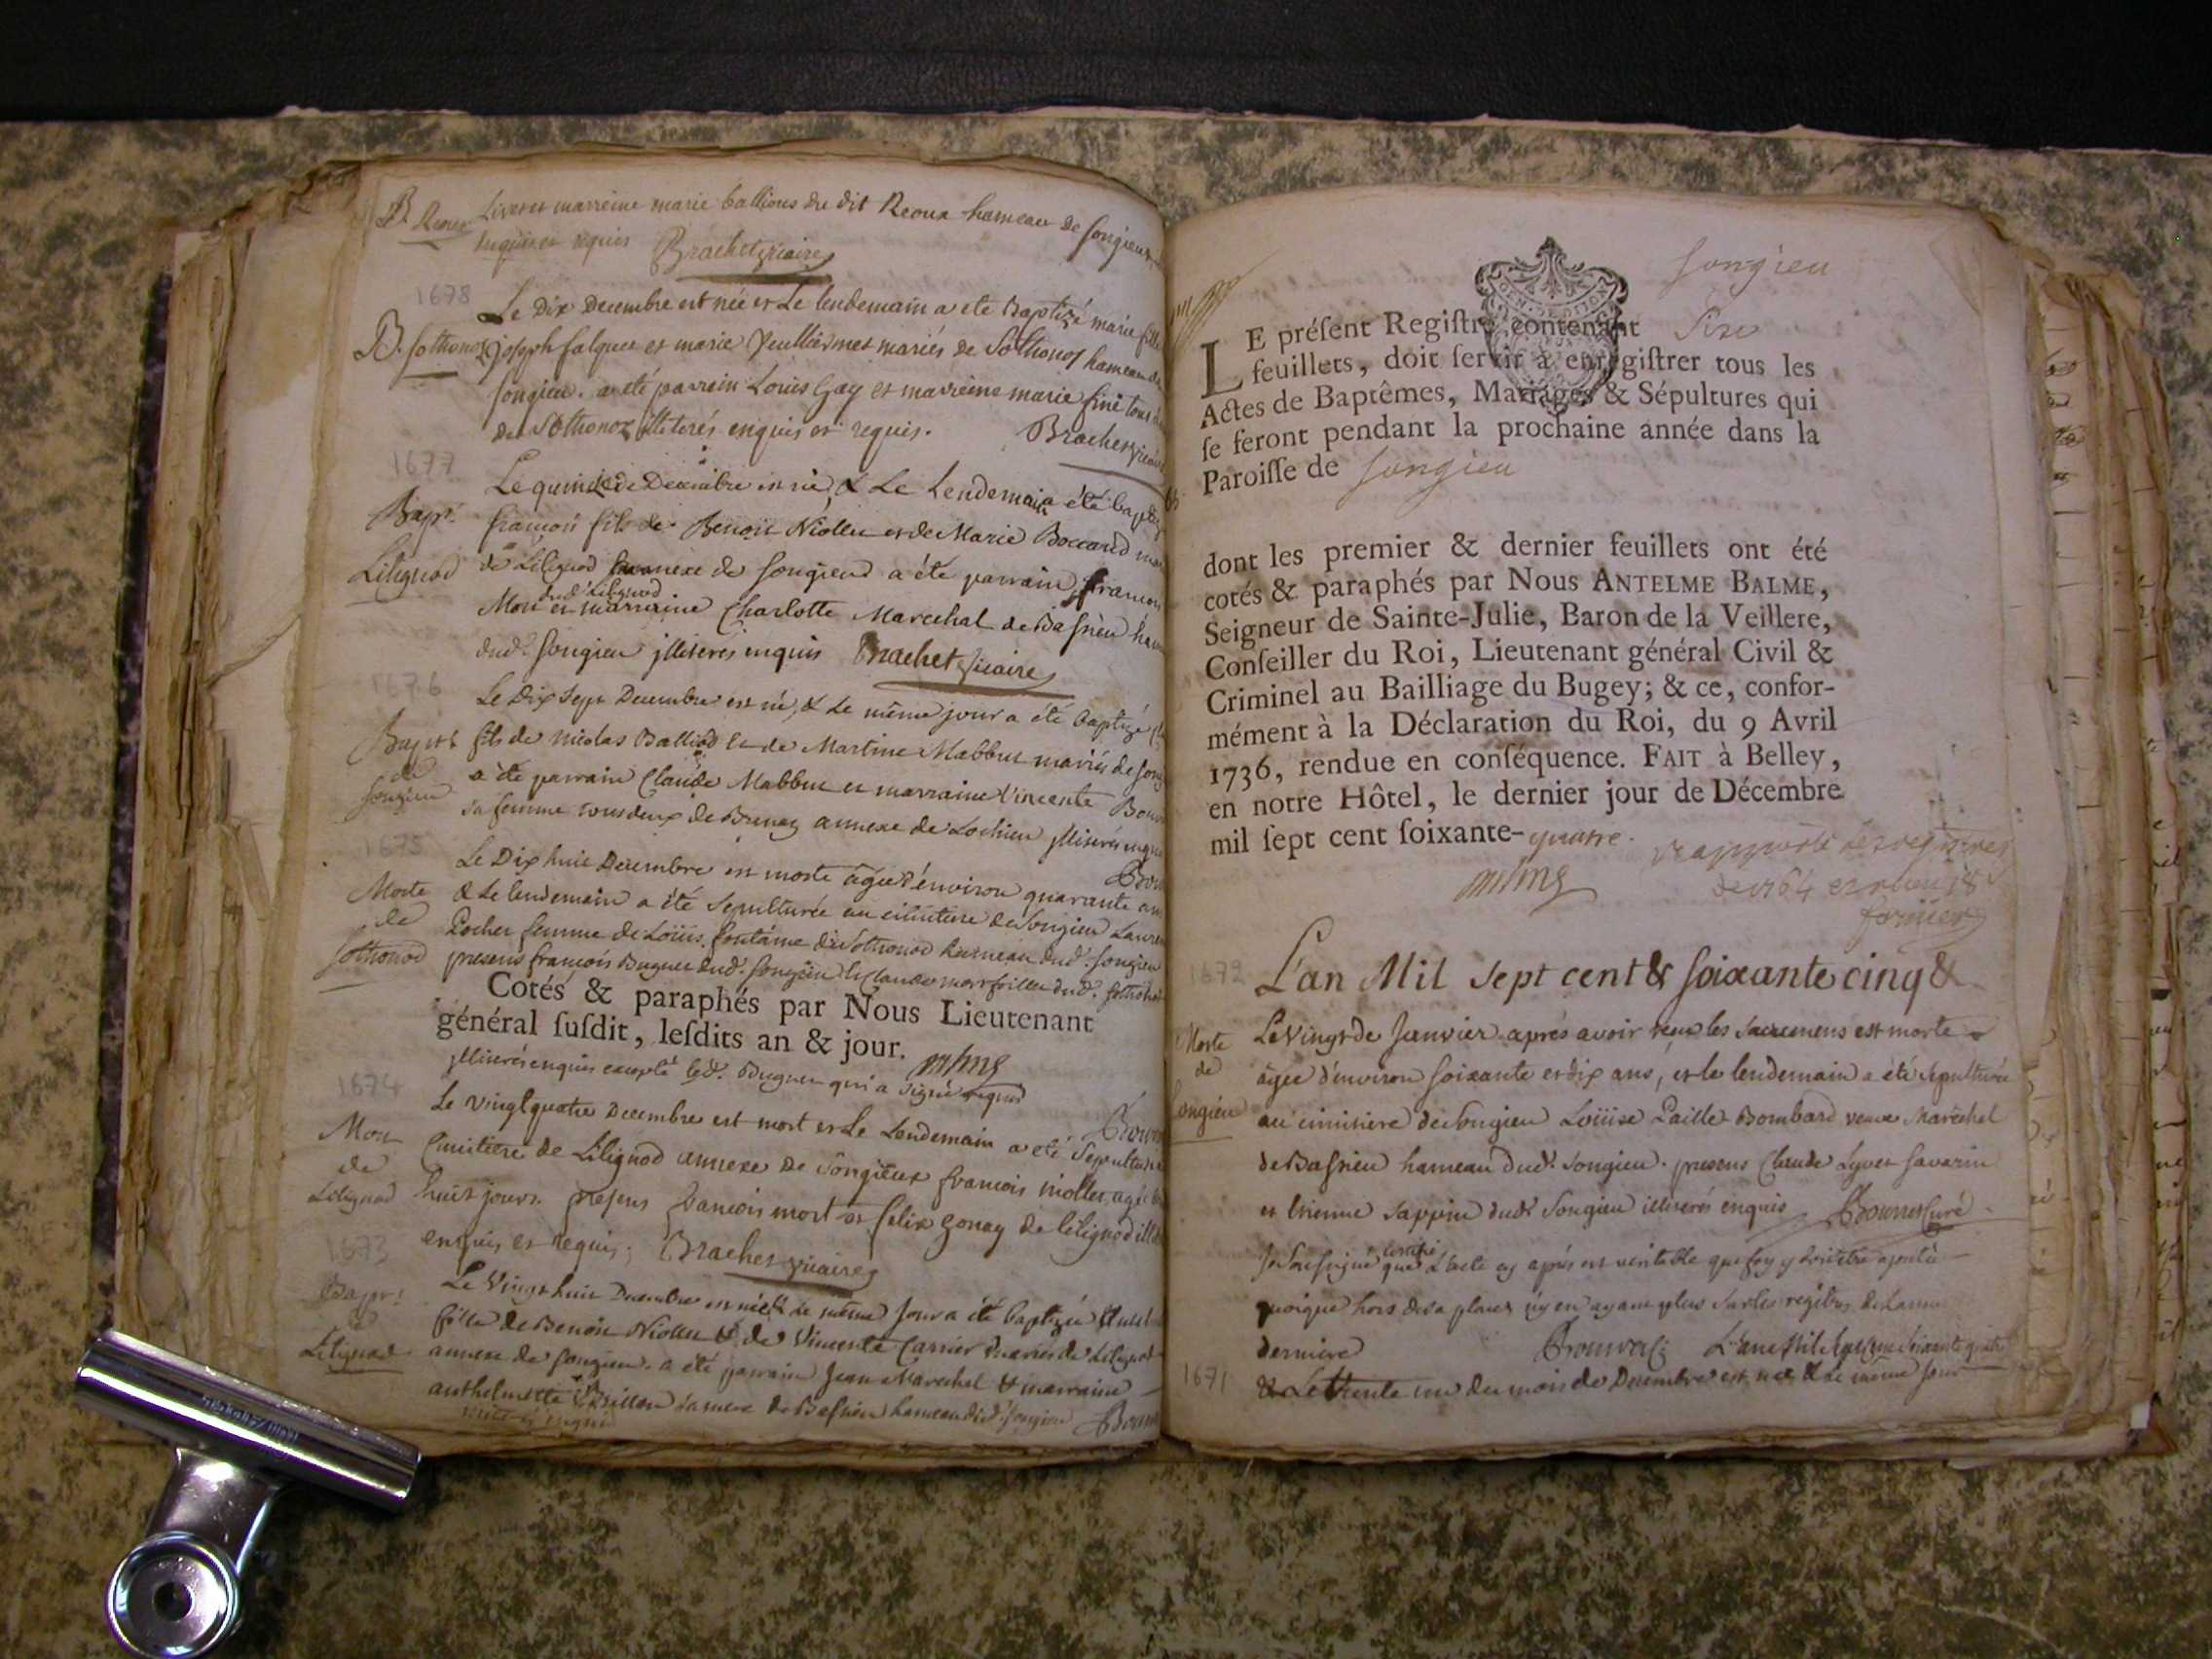 B. Reoux
Livet et marreine marie ballious du dit Reoux hameau de songieux
enquis et requis Brachet vicaire
1678
B. sothonoz
Le Dix Decembre est née et Le lendemain a ete Baptizé marie fille
joseph falquet et marie Vuilliermet mariés de Sothonoz hameau de
songieu. a eté parrein Louis Gay et marreine marie finé tous
de Sothonoz illiterés enquis et requis. Brachet vicaire
1677
Bapt.
Lilignod
Le quinze de Decembre est né, & Le Lendemain a été baptizé
francois fils de Benoit Niollet et de Marie Boccard
de Lilignod annexe de songieu a été parrain francois
Mort dud. Lilignod et marraine Charlotte Marechal de Bassieu
dud. songieu jlliterés enquis Brachet vicaire
1676
Bapt.
de
songieu
Le Dix sept Decembre est né, & Le même jour a été baptizé
fils de nicolas Balliod et de Martine Mabbut mariés de
a été parrain Claude Mabbut et marraine Vincente
sa femme tous deux de Brenaz annexe de Lochieu jlliterés
1675
Morte
de
sothonod
Le Dix huit Decembre est morte agée d'environ quarante ans
& Le lendemain a été sepulturée au cimitiere de songieu
Pochet femme de Loüis fontaine de Sothonod hameau dud. songieu
presens francois Buguet dud. songieu et Claude dud.
Cotés & paraphés par Nous Lieutenant
général ſuſdit, leſdits an & jour.
jlliterés enquis excepté led. Buguet qui a signé requis
1674
Mort
de
Lilignod
Le vingt quatre Decembre est mort et Le Lendemain a eté
Cimitiere de Lilignod annexe de Songieux francois niollet agé
huit jours. presens francois mort et felix gonay de lilignod
enquis et requis; Brachet vicaire
1673
Bapt.
de
Lilignod
Le Vingt huit Decembre est née & Le même Jour a été baptizée
fille de Benoit Niollet & de Vincente Carrier mariés de Lilignod
annexe de songieu. a été parrain Jean Marechal & marraine
anthelmette de Bassieu hameau dud. songieu
enquis
songieu
LE préſent Regiſtre contenant Six
feuillets, doit ſervir à enregiſtrer tous les
Actes de Baptêmes, Mariages & Sépultures qui
ſe feront pendant la prochaine année dans la
Paroiſſe de songieu
dont les premier & dernier feuillets ont été
cotés & paraphés par Nous ANTELME BALME,
Seigneur de Sainte-Julie, Baron de la Veillere,
Conſeiller du Roi, Lieutenant général Civil &
Criminel au Bailliage du Bugey; & ce, confor-
mément à la Déclaration du Roi, du 9 Avril
1736, rendue en conſéquence. FAIT à Belley,
en notre Hôtel, le dernier jour de Décembre
mil ſept cent ſoixante-quatre.
rapporté les registres
de 1764
1672
L'an Mil sept cent & soixante cinq &
Morte
de
songieu
Le Vingt de Janvier après avoir reçu les sacremens est morte
agée d'environ soixante et dix ans, et le lendemain a été sepulturée
au cimitiere de songieu Loüise Paille Bombard veuve Marechal
de Bassieu hameau dud. Songieu. presens Claude Lyvet Savarin
et Etienne Sappin dud. Songieu illiterés enquis Curé
Je soussigné certifie que L'acte cy après est veritable que foy y doit être ajoutée
quoique hors de sa place n'y en ayant plus sur les registres de L'année
derniere L'an Mil sept cent soixante quatre
1671
& Le trente un du mois de Decembre est née & Le même Jour